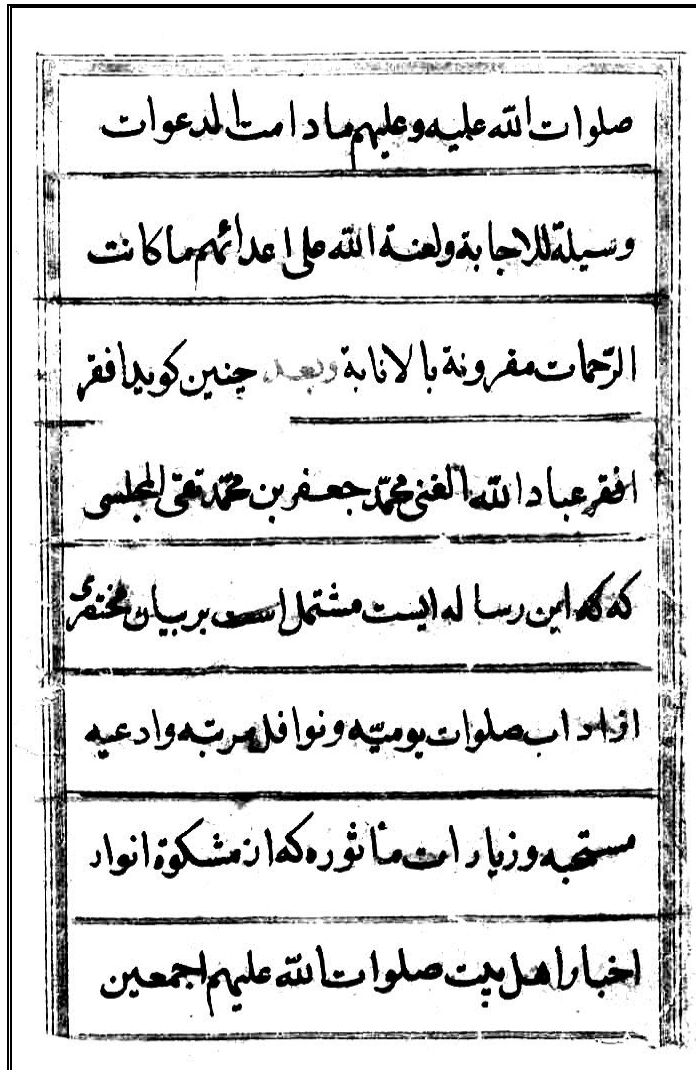 صلوات الله عليه وعليهم مادامت الدعوات
وسيلة للاجابة ولعنة الله على اعدائهم ما كانت
الرّحمات مقرونة بالانابة وبعد چنين كويد افقر
افقر عباد الله الغنى محمّد جعفر بن محمّد تقى المجلسى
كه كه اين رساله ايست مشتمل است بر بيان مختصرى
از اداب صلوات يوميّه و نوافل مرتبه وادعيه
مستحبه و زيارات مأثوره كه از مشكوة انوار
اخبار اهل بيت صلوات الله عليهم اجمعين